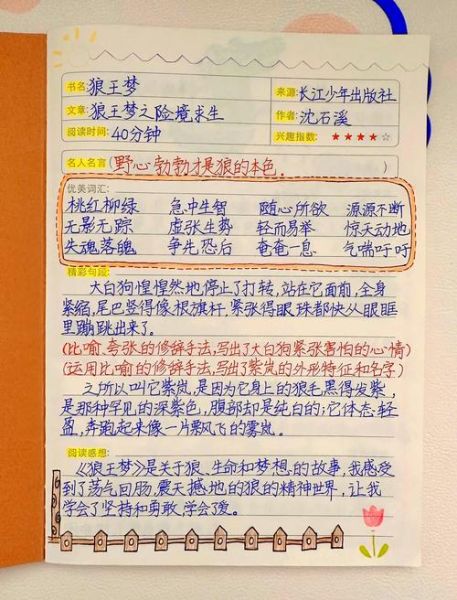 书名:狼王梦 来源:长江少年出版社
文章:狼王梦之险境求生 作者:沈石溪
阅读时间:40分钟 兴趣指数:★★★★☆
名人名言(野心勃勃才是狼的本色. )
优美词汇:
桃红柳绿 急中生智 随心所欲 源源不断
无影无踪 虚张生势 轻而易举 惊天动地
失魂落魄 争先恐后 奄奄一息 气喘吁吁
精彩句段:
大白狗惶惶然地停止了打转,站在它面前,全身
紧缩,尾巴竖得像根旗杆,紧张得眼珠都快从眼眶
里蹦跳出来了。
(比喻、夸张的修辞手法,写出了大白狗紧张害怕的心情)
(运用比喻的修辞手法,写出了紫岚的外形特征和名字)
之所以叫它紫岚,是因为它身上的狼毛黑得发紫,
是那种罕见的深紫色,腹部却是纯白的;它体态轻
盈,奔跑起来像一片飘飞的雾岚。
阅读感想:
《狼王梦》是关于狼、生命和梦想的故事,我感受
到了荡气回肠、震天撼地的狼的精神世界,让我
学会了坚持和勇敢,学会了爱。